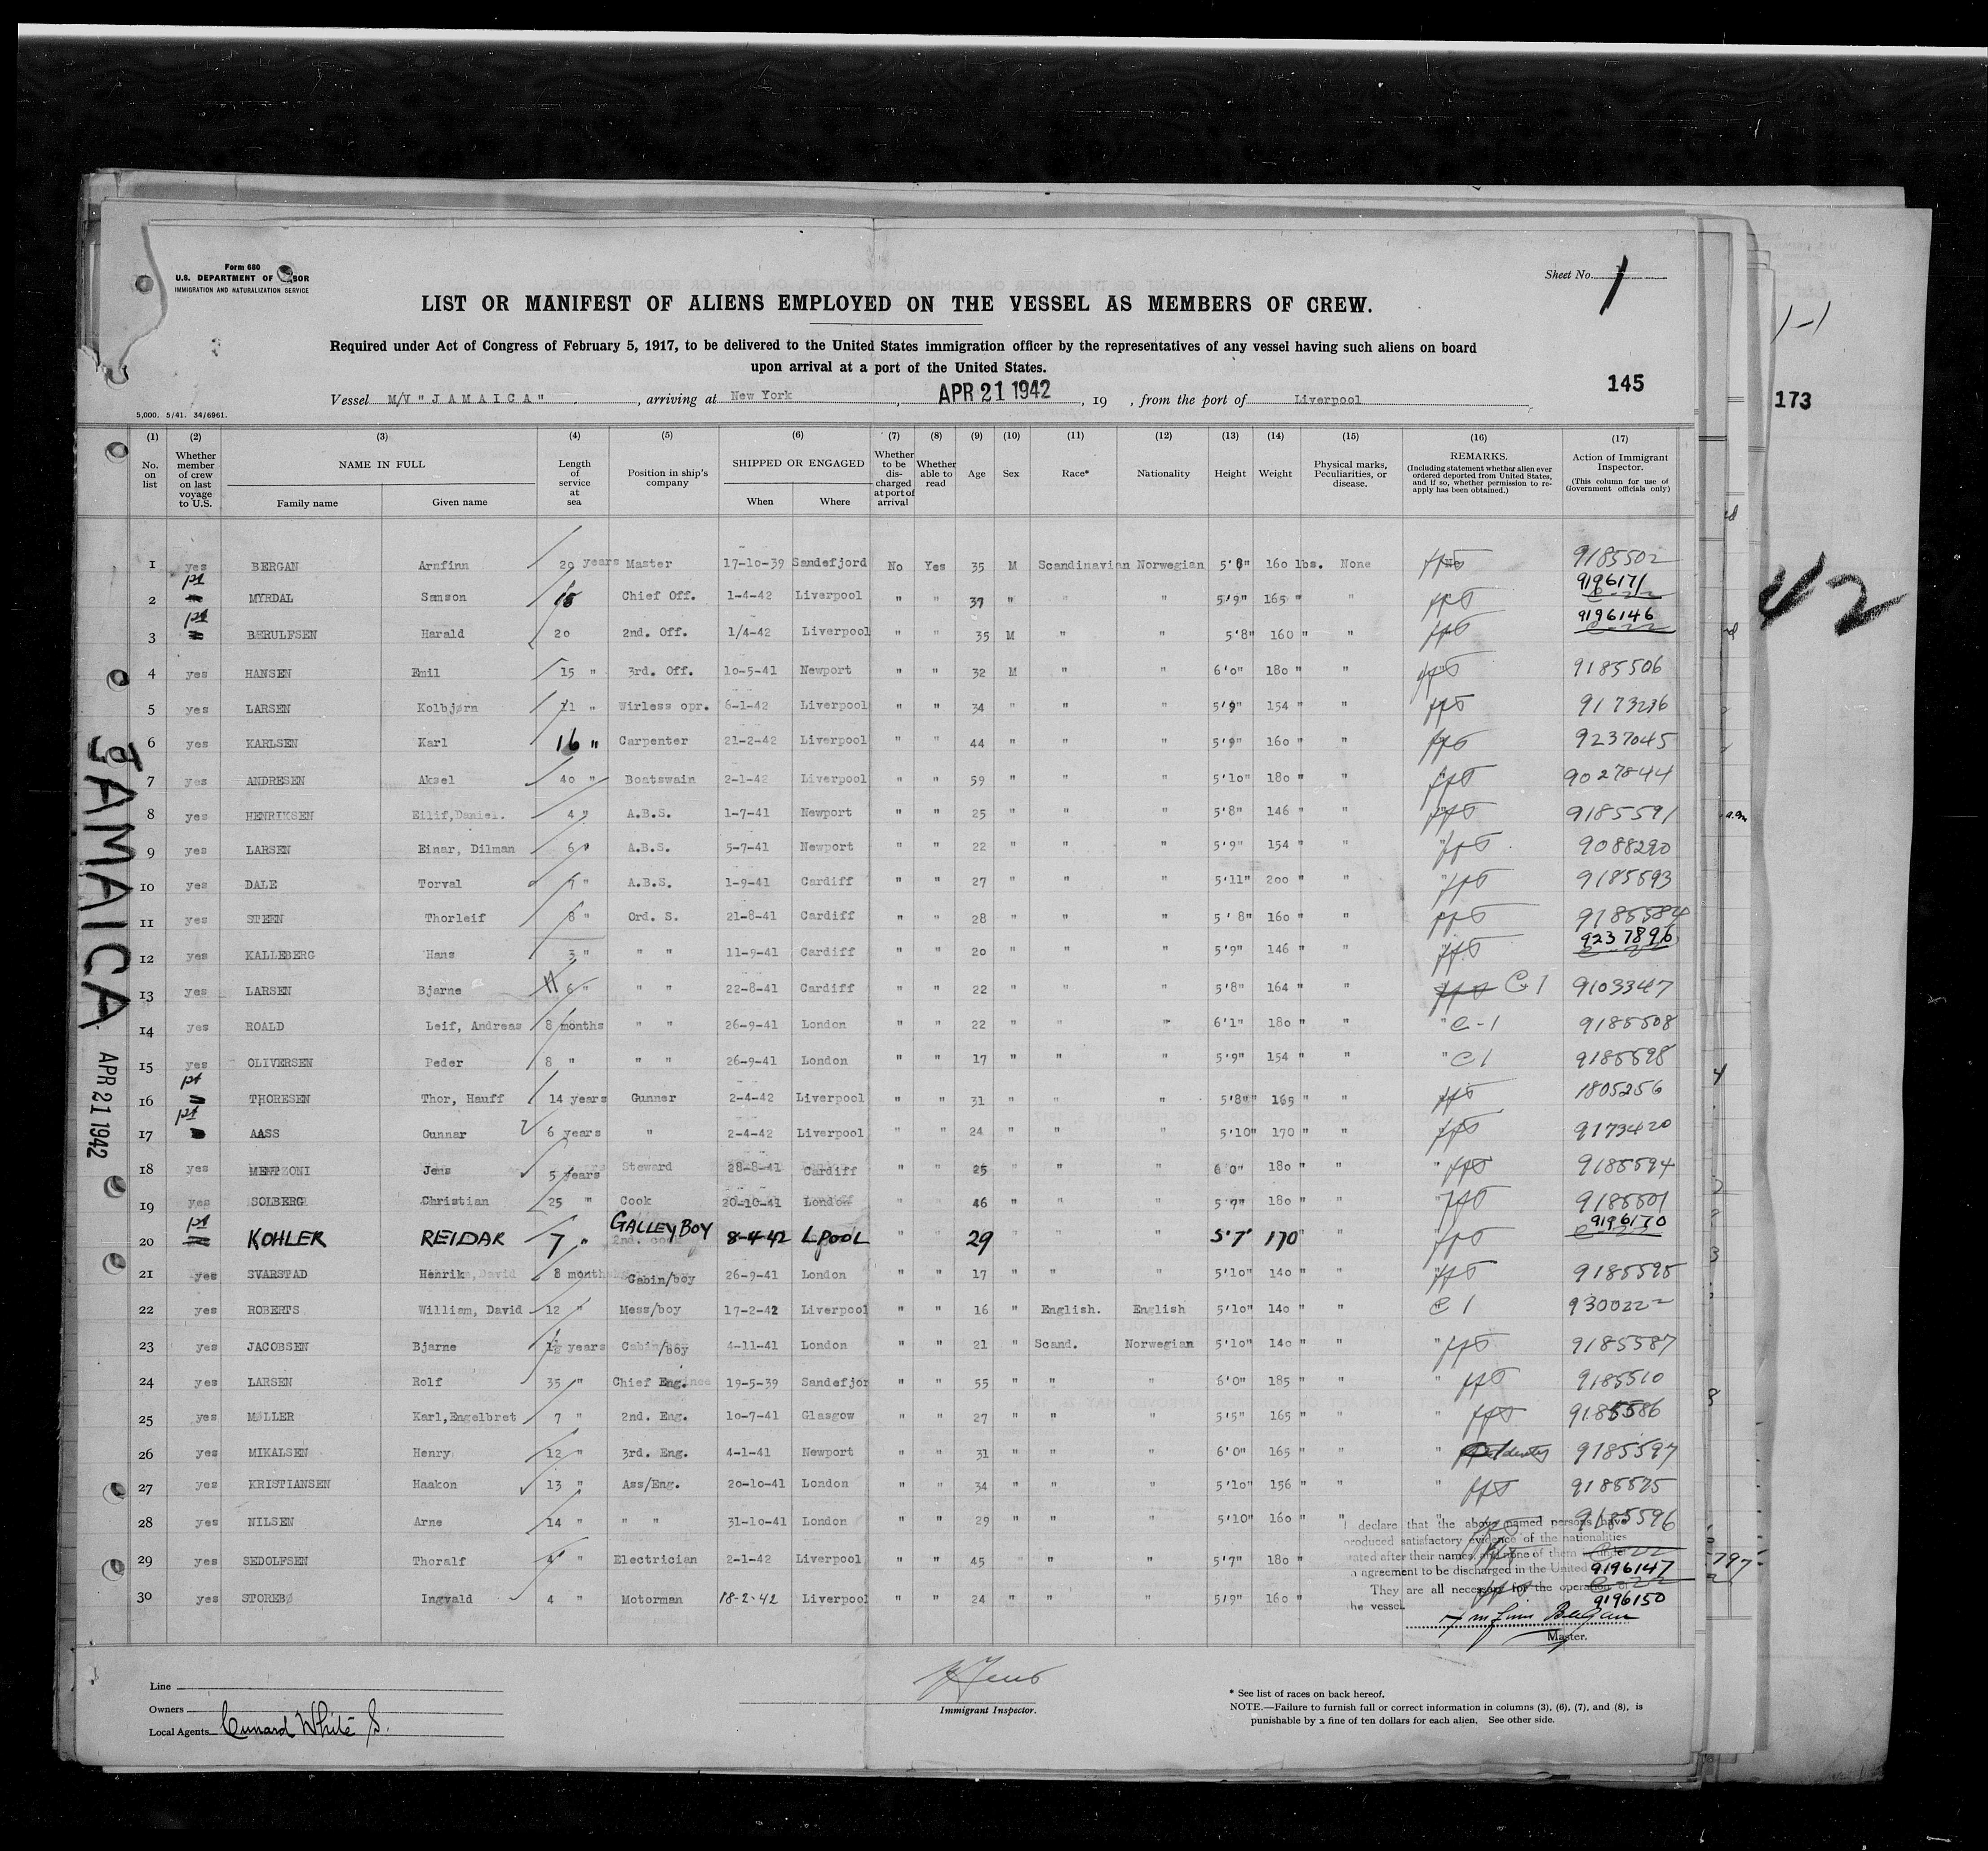 Form 680
U.S. DEPARTMENT OF LABOR
IMMIGRATION AND NATURALIZATION SERVICE
Sheet No. 1
LIST OR MANIFEST OF ALIENS EMPLOYED ON THE VESSEL AS MEMBERS OF CREW.
Required under Act of Congress of February 5, 1917, to be delivered to the United States immigration officer by the representatives of any vessel having such aliens on board
upon arrival at a port of the United States.
145
173
1-1
42
5,000. 5/41. 34/6961.
Vessel M/V "JAMAICA", arriving at New York, APR 21 1942, 19 , from the port of Liverpool
(1) (2) (3) (4) (5) (6) (7) (8) (9) (10) (11) (12) (13) (14) (15) (16) (17)
No. on list
Whether member of crew on last voyage to U.S.
NAME IN FULL
Family name Given name
Length of service at sea
Position in ship's company
SHIPPED OR ENGAGED
When Where
Whether to be discharged at port of arrival
Whether able to read
Age
Sex
Race*
Nationality
Height
Weight
Physical marks, Peculiarities, or disease.
REMARKS.
(Including statement whether alien ever ordered deported from United States, and if so, whether permission to reapply has been obtained.)
Action of Immigrant Inspector.
(This column for use of Government officials only)
1 yes BERGAN Arnfinn 20 years Master 17-10-39 Sandefjord No Yes 35 M Scandinavian Norwegian 5'8" 160 lbs. None 9185502
2 MYRDAL Samson Chief Off. 1-4-42 Liverpool " " 37 " " " 5'9" 165 " " 9196171
3 BERULFSEN Harald 20 2nd. Off. 1/4-42 Liverpool " " 35 M " " 5'8" 160 " " 9196146
4 yes HANSEN Emil 15 " 3rd. Off. 10-5-41 Newport " " 32 M " " 6'0" 180 " " 9185506
5 yes LARSEN Kolbjørn 11 " Wirless opr. 6-1-42 Liverpool " " 34 " " " 5'9" 154 " " 9173236
6 yes KARLSEN Karl 16 " Carpenter 21-2-42 Liverpool " " 44 " " " 5'9" 160 " " 9237045
7 yes ANDRESEN Aksel 40 " Boatswain 2-1-42 Liverpool " " 59 " " " 5'10" 180 " " 9027844
8 yes HENRIKSEN Eilif, Daniel. 4 " A.B.S. 1-7-41 Newport " " 25 " " " 5'8" 146 " " 9185591
9 yes LARSEN Einar, Dilman 6 " A.B.S. 5-7-41 Newport " " 22 " " " 5'9" 154 " " 9088290
10 yes DALE Torval 7 " A.B.S. 1-9-41 Cardiff " " 27 " " " 5'11" 200 " " 9185593
11 yes STEEN Thorleif 8 " Ord. S. 21-8-41 Cardiff " " 28 " " " 5'8" 160 " " 9185584
12 yes KALLEBERG Hans 3 " " " 11-9-41 Cardiff " " 20 " " " 5'9" 146 " " 9237896
13 yes LARSEN Bjarne 6 " " " 22-8-41 Cardiff " " 22 " " " 5'8" 164 " " C1 9103347
14 yes ROALD Leif, Andreas 8 months " " 26-9-41 London " " 22 " " " 6'1" 180 " " " C-1 9185508
15 yes OLIVERSEN Peder 8 " " " 26-9-41 London " " 17 " " " 5'9" 154 " " " C1 9185598
16 THORESEN Thor, Hauff 14 years Gunner 2-4-42 Liverpool " " 31 " " " 5'8" 165 " " 1805256
17 AASS Gunnar 6 years " 2-4-42 Liverpool " " 24 " " " 5'10" 170 " " 9173420
18 yes MENTZONI Jens 5 years Steward 28-8-41 Cardiff " " 25 " " " 6'0" 180 " " 9185594
19 yes SOLBERG Christian 25 " Cook 20-10-41 London " " 46 " " " 5'9" 180 " " 9185501
20 KOHLER REIDAR 7 " GALLEY BOY 8-4-42 LPOOL " " 29 " " " 5'7" 170 9196170
21 yes SVARSTAD Henrik 8 months Cabin/boy 26-9-41 London " " 17 " " " 5'10" 140 " " 9185595
22 yes ROBERTS William, David 12 " Mess/boy 17-2-42 Liverpool " " 16 " English. English 5'10" 140 " " C1 9300222
23 yes JACOBSEN Bjarne 1½ years Cabin/boy 4-11-41 London " " 21 " Scand. Norwegian 5'10" 140 " " 9185587
24 yes LARSEN Rolf 35 " Chief Eng. 19-5-39 Sandefjor " " 55 " " " 6'0" 185 " " 9185510
25 yes MØLLER Karl, Engelbret 7 " 2nd. Eng. 10-7-41 Glasgow " " 27 " " " 5'5" 165 " " 9185586
26 yes MIKALSEN Henry 12 " 3rd. Eng. 4-1-41 Newport " " 31 " " " 6'0" 165 " " 9185597
27 yes KRISTIANSEN Haakon 13 " Ass/Eng. 20-10-41 London " " 34 " " " 5'10" 156 " " 9185575
28 yes NILSEN Arne 14 " " " 31-10-41 London " " 29 " " " 5'10" 160 " " 9185596
29 yes SEDOLFSEN Thoralf 4 " Electrician 2-1-42 Liverpool " " 45 " " " 5'7" 180 " 9196147
30 yes STOREBØ Ingvald 4 " Motorman 18-2-42 Liverpool " " 24 " " " 5'9" 160 " 9196150
I declare that the above named persons have
produced satisfactory evidence of the nationalities
stated after their names, and none of them
agreement to be discharged in the United
They are all necessary for the operation of
the vessel.
Master.
JAMAICA
APR 21 1942
Line
Owners
Local Agents Cunard White S.
Immigrant Inspector.
* See list of races on back hereof.
NOTE.—Failure to furnish full or correct information in columns (3), (6), (7), and (8), is
punishable by a fine of ten dollars for each alien. See other side.